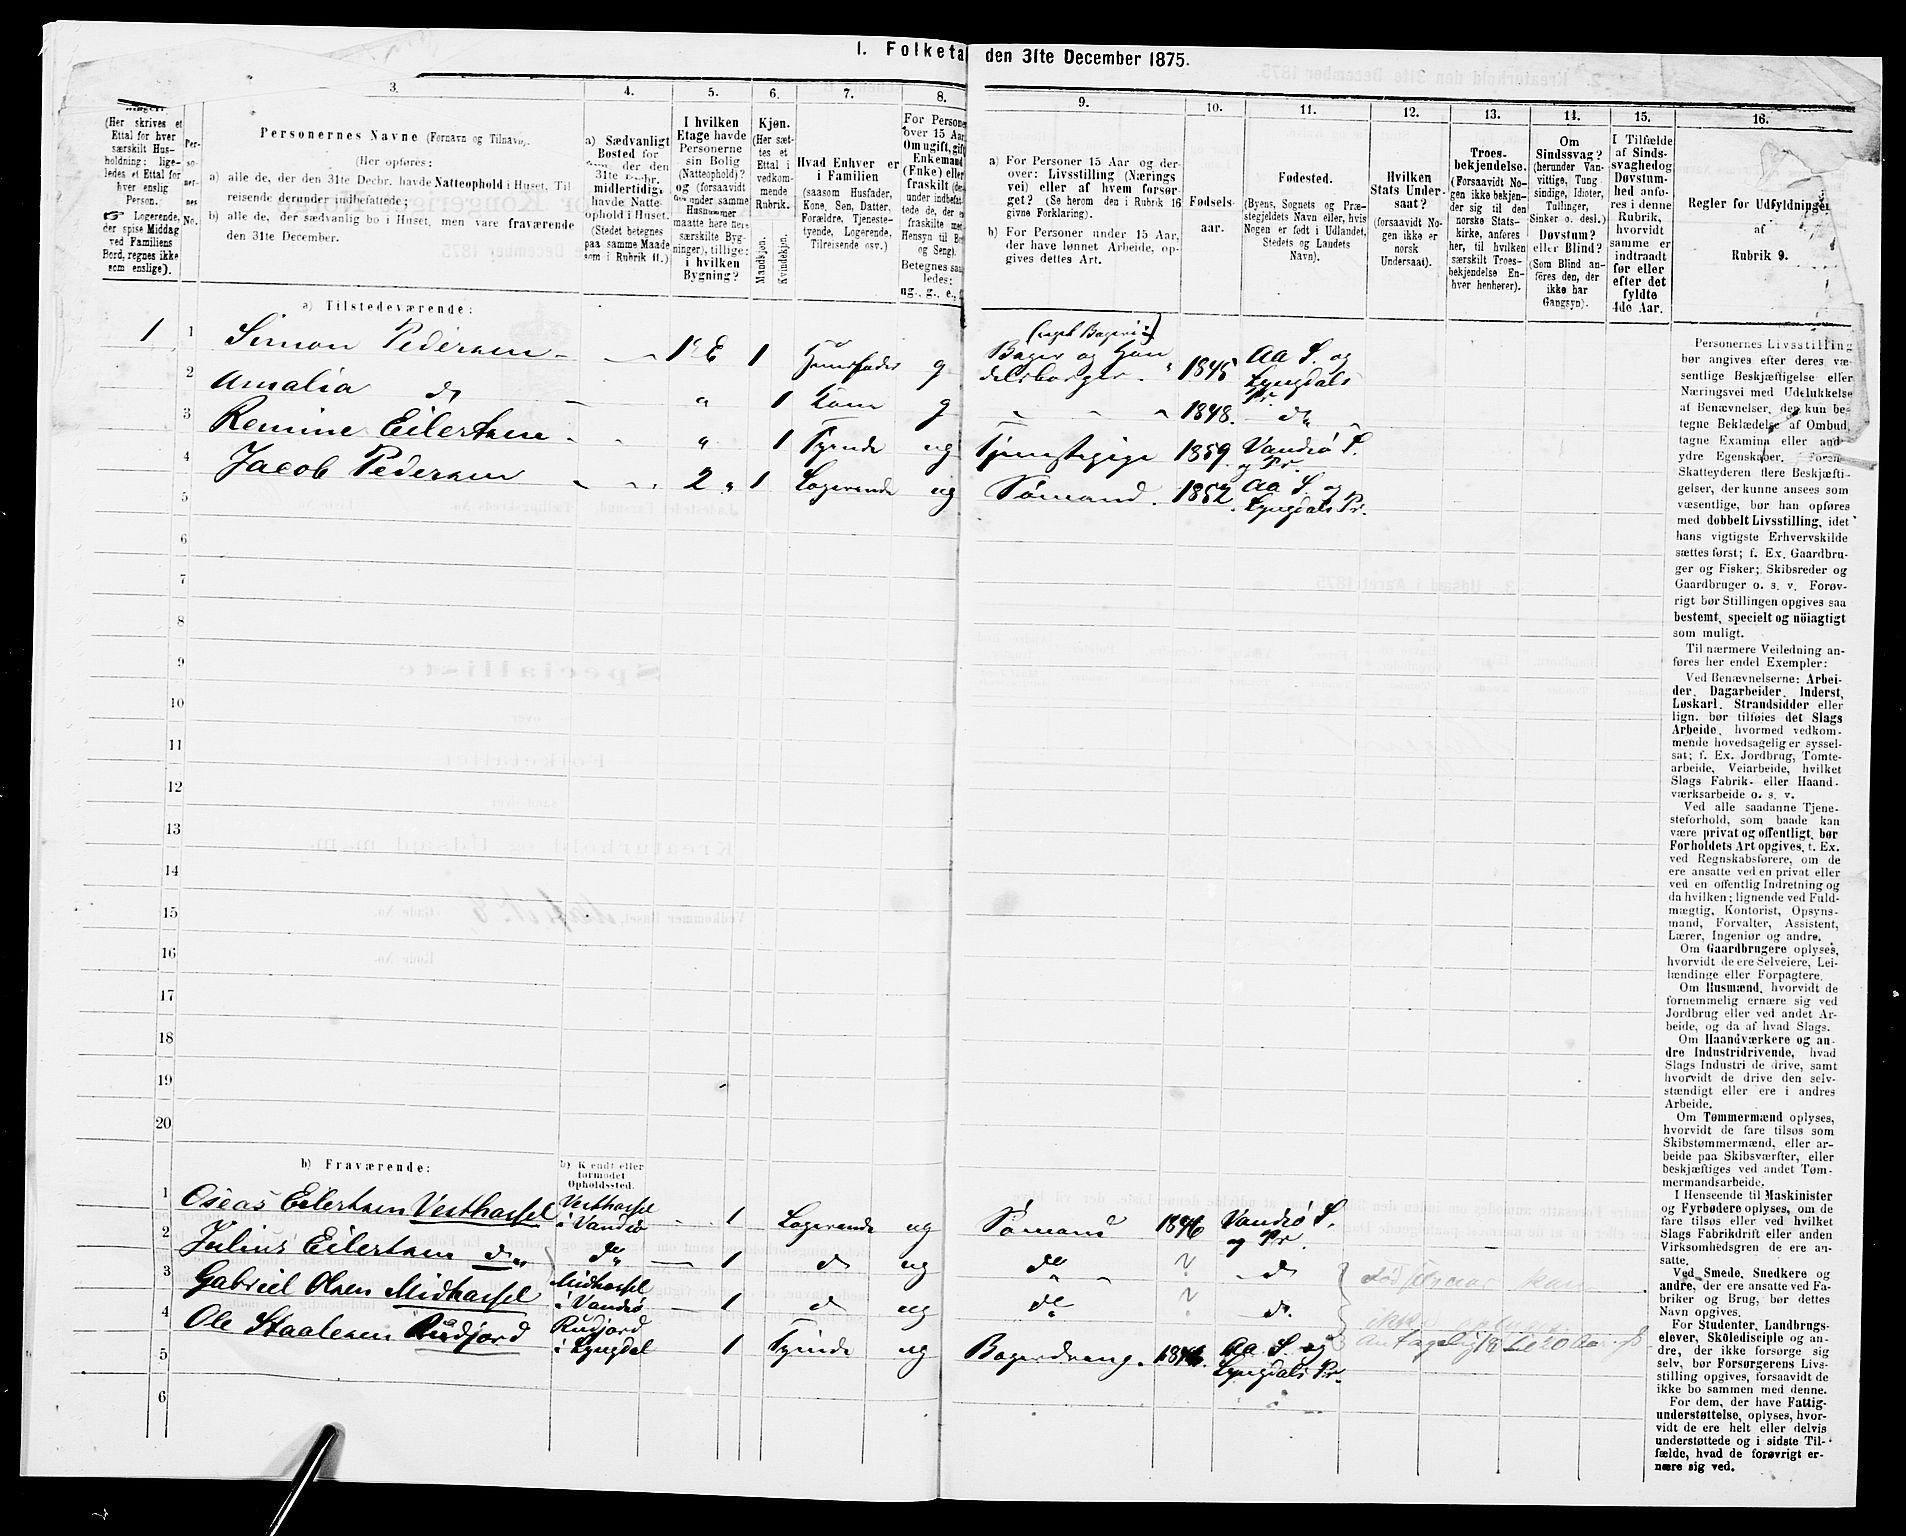 1. Folketa den 31te December 1875.
3. 4. 5. 6. 7. 8. 9. 10. 11. 12. 13. 14. 15. 16.
(Her skrives et
Ettal for hver
særskilt Hus-
holdning; lige-
ledes et Ettal for
hver enslig
Person.
☞ Logerende,
der spise Middag
ved Familiens
Bord, regnes ikke
som enslige).
Per-
so-
ner-
nes
No.
Personernes Navne (Fornavn og Tilnavn).
(Her opføres:
a) alle de, der den 31te Decbr. havde Natteophold i Huset, Til-
reisende derunder indbefattede;
b) alle de, der sædvanlig bo i Huset, men vare fraværende
den 31te December.
a) Sædvanligt
Bosted for
dem, der den
31te Decbr.
midlertidig
havde Natte-
ophold i Huset.
(Stedet betegnes
paa samme Maade
som i Rubrik 11.)
I hvilken
Etage havde
Personerne
sin Bolig
(Natteophold)?
og (forsaavidt
der under samme
Husnummer
maatte høre flere
særskilte Byg-
ninger), tillige:
i hvilken
Bygning?
Kjøn.
(Her sæt-
tes et
Ettal i
vedkom-
mende
Rubrik.
Mandkjøn.
Kvindekjøn.
Hvad Enhver er
i Familien
(saasom Husfader,
Kone, Søn, Datter,
Forældre, Tjeneste-
tyende, Logerende,
Tilreisende osv.)
For Persone
over 15 Aar
Om ugift, gift
Enkemand
(Enke) eller
fraskilt (der-
under indbefat-
tede de, der er
fraskilte med
Hensyn til Bo
og Seng).
Betegnes saa-
ledes:
ug., g., e.,
a) For Personer 15 Aar og der-
over: Livsstilling (Nærings
vei) eller af hvem forsør-
get? (Se herom den i Rubrik 16
givne Forklaring).
b) For Personer under 15 Aar,
der have lønnet Arbeide, op-
gives dettes Art.
Fødsels-
aar.
Fødested.
(Byens, Sognets og Præ-
stegjeldets Navn eller, hvis
Nogen er født i Udlandet,
Stedets og Landets
Navn).
Hvilken
Stats Under-
saat?
(forsaavidt No-
gen ikke er
norsk
Undersaat).
Troes-
bekjendelse.
(Forsaavidt No-
gen ikke bekjen-
der sig til den
norske Stats-
kirke, anføres
her, til hvilken
særskilt Troes-
bekjendelse En-
hver henhører).
Om
Sindssvag?
(herunder Van-
vittige, Tung-
sindige, Idioter,
Tullinger,
Sinker o. desl.)
Døvstum?
eller Blind?
(Som Blind an-
føres den, der
ikke har
Gangsyn).
I Tilfælde
af Sinds-
svaghed og
Døvstum-
hed anfø-
res i denne
Rubrik,
hvorvidt
samme er
indtraadt
før eller
efter det
fyldte
4de Aar.
Regler for Udfyldningen
af
Rubrik 9.
a) Tilstedeværende:
1 1 Simon Pedersen 1ste E 1 Huusfader g (eget Bageri) Bager og Han-
delsborger. 1845 Aa S. og
Lyngdals
Pr.
2 Amalia do " 1 Kone g 1848. do
3 Remine Eilertsen " 1 Tyende ug Tjenstepige 1859 Vandsø S.
og Pr.
4 Jacob Pedersen 2 " 1 Logerende ug Sømand. 1852. Aa S. og
Lyngdals Pr.
5
6
7
8
9
10
11
12
13
14
15
16
17
18
19
20
b) Fraværende:
b) Kjendt eller
formodet
Opholdssted.
1 Oseas Eilertsen Vesthassel Vesthassel
i Vandsø 1 Logerende ug Sømand 1846 Vandsø S.
og Pr.
2 Julius Eilertsen do do 1 do ug do ? do
3 Gabriel Olsen Midhassel Midhassel
i Vandsø 1 do ug do ? do.
4 Ole Staalesen Rudjord Rudjord
i Lyngdal 1 Tyende ug Bagerdreng. Aa S. og
Lyngdals Pr.
5
6
ikke oplyses
antagelig 18 til 20 Aar
Personernes Livsstilling
bør angives efter deres væ-
sentlige Beskjæftigelse eller
Næringsvei med Udelukkelse
af Benævnelser, der kun be-
tegne Beklædelse af Ombud,
tagne Examina eller and-
ydre Egenskaber. Foren-
Skatteyderen flere Beskjæfti-
gelser, der kunne ansees som
væsentlige, bør han opføres
med dobbelt Livsstilling, idet
hans vigtigste Erhvervskilde
sættes først; f. Ex. Gaardbru-
ger og Fisker; Skibsreder og
Gaardbruger o. s. v. Forøv-
rigt bør Stillingen opgives saa
bestemt, specielt og nöiagtigt
som muligt.
Til nærmere Veiledning an-
føres her endel Exempler:
Ved Benævnelserne: Arbei-
der, Dagarbeider, Inderst,
Løskarl, Strandsidder eller
lign. bør tilføies det Slags
Arbeide, hvormed vedkom-
mende hovedsagelig er syssel-
sat; f. Ex. Jordbrug, Tomte-
arbeide, Veiarbeide, hvilket
Slags Fabrik- eller Haand-
værksarbeide o. s. v.
Ved alle saadanne Tjene-
steforhold, som baade kan
være privat og offentligt, bør
Forholdets Art opgives, f. Ex.
ved Regnskabsførere, om de
ere ansatte ved en privat eller
ved en offentlig Indretning og
da hvilken; lignende ved Fuld-
mægtig, Kontorist, Opsyns-
mand, Forvalter, Assistent,
Lærer, Ingeniør og andre.
Om Gaardbrugere oplyses,
hvorvidt de ere Selveiere, Lei-
lændinge eller Forpagtere.
Om Husmænd, hvorvidt de
fornemmelig ernære sig ved
Jordbrug eller ved andet Ar-
beide, og da af hvad Slags.
Om Haandværkere og an-
dre Industridrivende, hvad
Slags Industri de drive, samt
hvorvidt de drive den selv-
stændigt eller ere i andres
Arbeide.
Om Tømmermænd oplyses,
hvorvidt de fare tilsøs som
Skibstømmermænd, eller ar-
beide paa Skibsværfter, eller
beskjæftiges ved andet Tøm-
mermandsarbeide.
I Henseende til Maskinister
og Fyrbødere oplyses, om de
fare tilsøs eller ved hvilket
Slags Fabrikdrift eller anden
Virksomhedsgren de ere an-
satte.
Ved Smede, Snedkere og
andre, der ere ansatte ved Fa-
briker og Brug, bør dettes
Navn opgives.
For Studenter, Landbrugs-
elever, Skoledisciple og an-
dre, der ikke forsørge sig
selv, bør Forsørgerens Livs-
stilling opgives, forsaavidt de
ikke bo sammen med denne.
For dem, der have Fattig-
understøttelse, oplyses, hvor-
vidt de ere helt eller delvis
understøttede og i sidste Til-
fælde, hvad de forøvrigt er-
nære sig ved.